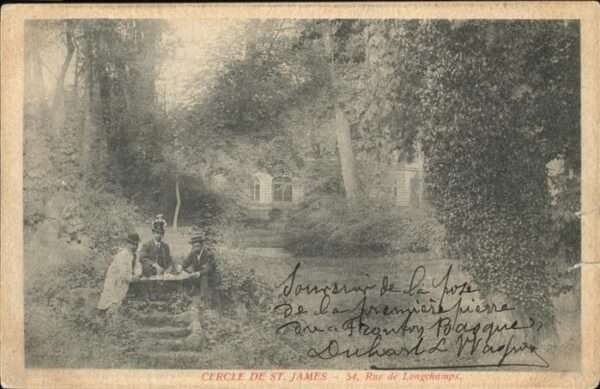 Souvenir de la pose
de la première pierre
du Fronton Basque
Duhart L Wagnon
CERCLE DE ST. JAMES — 54, Rue de Longchamps.